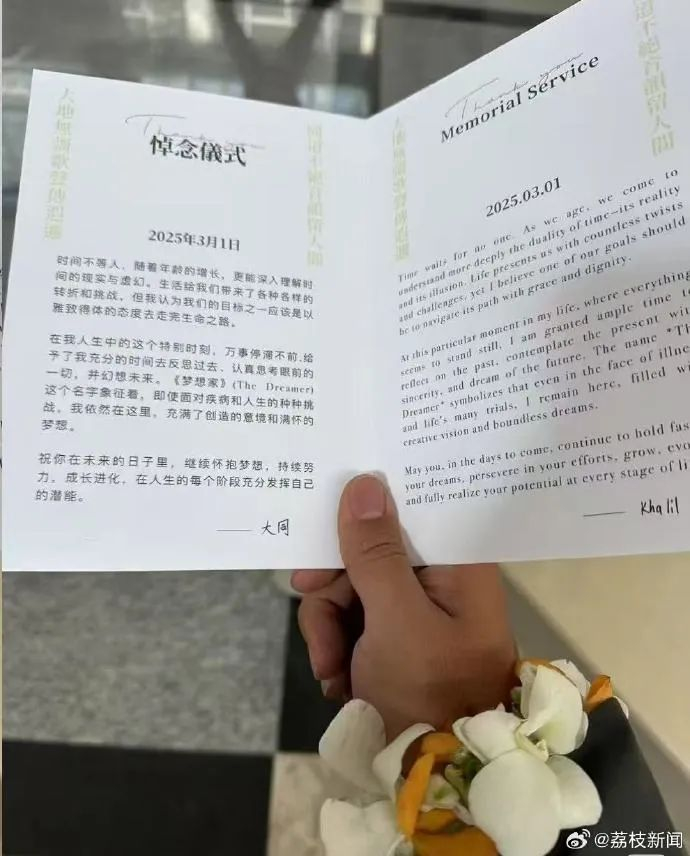 Thank you
悼念儀式
2025年3月1日
时间不等人。随着年龄的增长，更能深入理解时
间的现实与虚幻。生活给我们带来了各种各样的
转折和挑战，但我认为我们的目标之一应该是以
雅致得体的态度去走完生命之路。
在我人生中的这个特别时刻，万事停滞不前,给
予了我充分的时间去反思过去、认真思考眼前的
一切，并幻想未来。《梦想家》(The Dreamer)
这个名字象征着，即使面对疾病和人生的种种挑
战，我依然在这里，充满了创造的意境和满怀的
梦想。
祝你在未来的日子里，继续怀抱梦想，持续努
力，成长进化，在人生的每个阶段充分发挥自己
的潜能。
—— 大同
Thank you
Memorial Service
留人間
2025.03.01
Time waits for no one. As we age, we come to
understand more deeply the duality of time—its reality
and its illusion. Life presents us with countless twists
and challenges, yet I believe one of our goals should
be to navigate its path with grace and dignity.
At this particular moment in my life, where everything
seems to stand still, I am granted ample time to
reflect on the past, contemplate the present with
sincerity, and dream of the future. The name "Th
Dreamer" symbolizes that even in the face of illnes
and life's many trials, I remain here, filled wi
creative vision and boundless dreams.
May you, in the days to come, continue to hold fas
your dreams, persevere in your efforts, grow, evo
and fully realize your potential at every stage of li
—— Khalil
@荔枝新闻